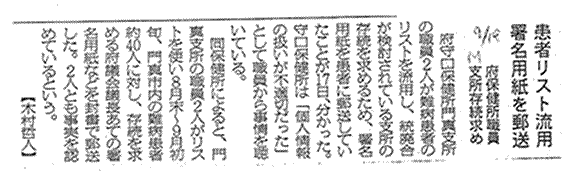 患者リスト流用
署名用紙を郵送
府保健所職員
支所存続求め
9/18
M
府守口保健所門真支所
の職員2人が難病患者の
リストを流用し、統廃合
が検討されている支所の
存続を求めるため、署名
用紙を患者に郵送してい
たことが17日、分かった。
守口保健所は「個人情報
の扱いが不適切だった」
として職員から事情を聴
いている。
同保健所によると、門
真支所の職員2人がリス
トを使い8月末〜9月初
旬、門真市内の難病患者
約40人に対し、存続を求
める府議会議長あての署
名用紙などを封書で郵送
した。2人とも事実を認
めているという。
【木村哲人】